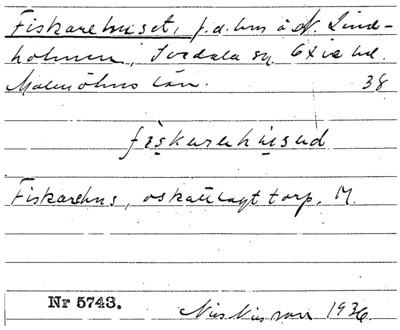 Fiskarehuset, f.d. hus å N. Lind-
holmen, Svedala sn. Oxie hd.
Malmöhus län. 38
fiskarahused
Fiskarehus, oskattlagt torp. M.
Nr 5743.
Nils Nilsson 1936.